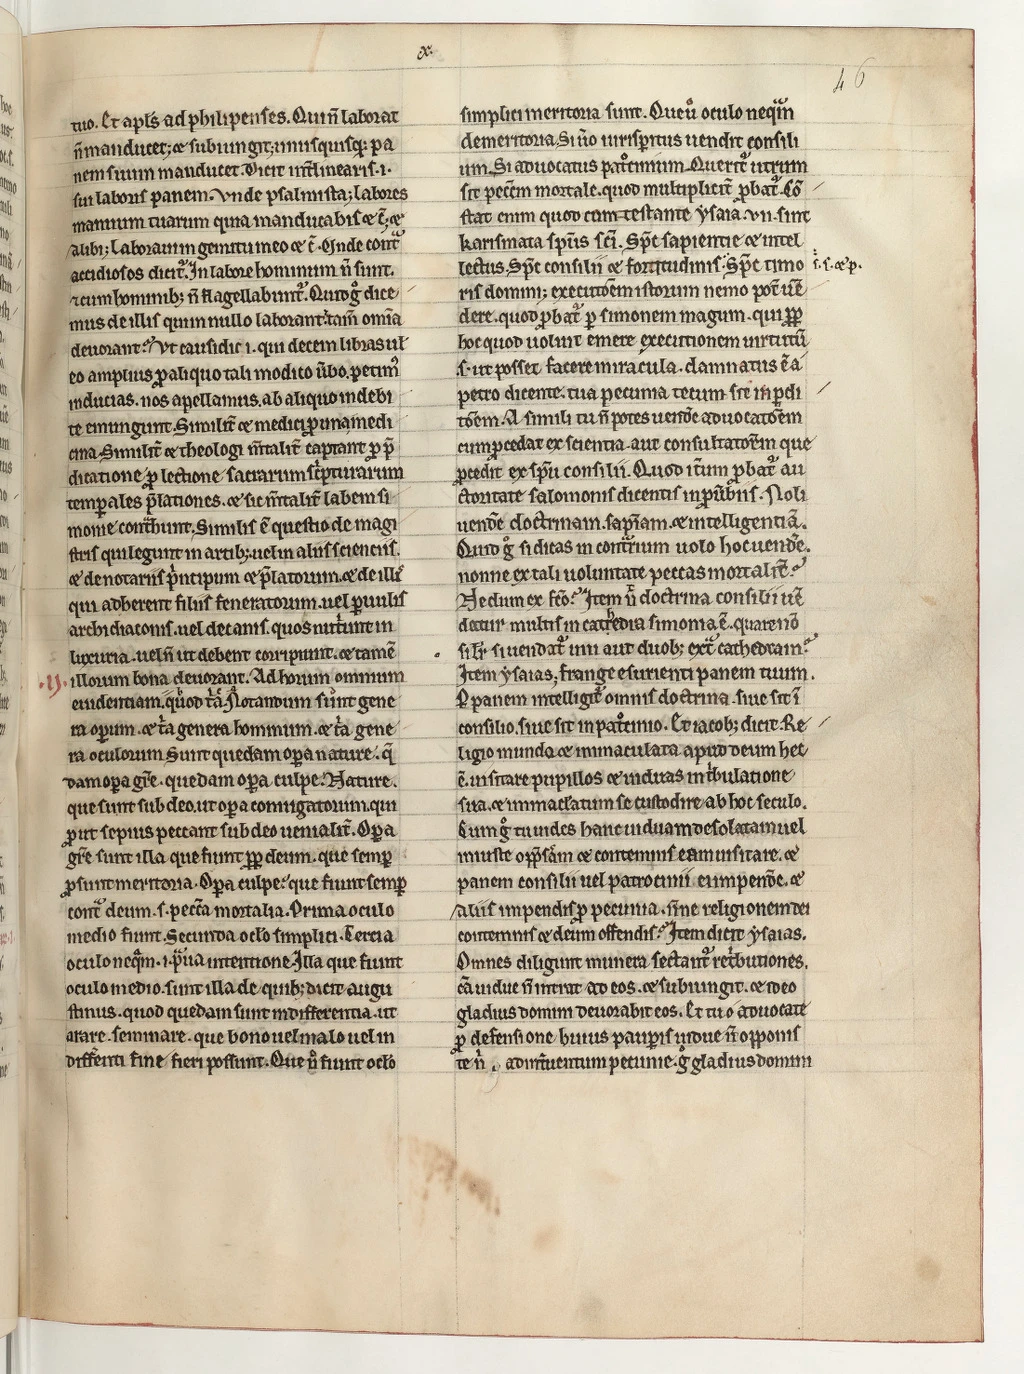 .x.
46
tuo. Et apl's ad philipenses. Qui n̄ laborat
n̄ manducet; ⁊ subiungit; unusquisq; pa
nem suum manducet. Dicit int̄linearis .i.
sui laboris panem. Vnde psalmista; labores
manuum tuarum quia manducabis ⁊ c̄; ⁊
alibi; Laboraui in gemitu meo ⁊ c̄. Vnde cont̄
accidiosos dicit᷑. In labore hominum n̄ sunt.
⁊ cum hominib; n̄ flagellabunt᷑. Quid gͦ dice
mus de illis qui in nullo laborant. tam̄ omīa
deuorant? Vt causidici. qui decem libras ul
eo amplius ꝑ aliquo tali modico ūbo. petim᷒
inducias. nos apellamus. ab aliquo indebi
te emungunt. Similit̄ ⁊ medici ꝑ una medi
cina. Similit̄ ⁊ theologi m̄talit̄ captant ꝑ p̄
dicatione ꝓ lectione sacrarum sc̄pturarum
temꝑales p̄lationes. ⁊ sic m̄talit̄ labem si
monie cont̄hunt. Similis ē questio de magi
stris qui legunt in artib; uel in aliis scienciis.
⁊ de notariis p̄ncipum ⁊ p̄latorum. ⁊ de illis
qui adherent filiis feneratorum. uel ꝑuulis
archidiaconis. uel decanis. quos nut̄unt in
luxuria. uel n̄ ut debent corripiunt. ⁊ tamē
illorum bona deuorant. Ad horum omnium
euidentiam. quod t̄a Notandum sunt gene
ra oꝑum. ⁊ t̄a genera hominum. ⁊ t̄a gene
ra oculorum Sunt quedam oꝑa nature. q̄
dam opa gr̄e. quedam oꝑa culpe. Nature.
que sunt sub deo. ut oꝑa coniugatorum. qui
ꝓut sepius peccant sub deo uenialit̄. Oꝑa
gr̄e sunt illa que fiunt ꝓꝑ deum. que semꝑ
ꝓsunt meritoria. Oꝑa culpe. que fiunt semꝑ
cont̄ deum. s. pecc̄a mortalia. Prima oculo
medio fiunt. Secunda oclo simplici. Tercia
oculo neq̄m. .i. p̄ua intentione Illa que fiunt
oculo medio. sunt illa de quib; dicit augu
stinus. quod quedam sunt indifferentia. ut
arare. seminare. que bono uel malo uel in
diffēnti fine fieri possunt. Que ū fiunt oclō
simplici meritoria sunt. Que ū oculo neq̄m
demeritoria. Si ūo iurisꝑitus uendit consili
um. Si aduocatus pat̄cinium. Querit᷑ utrum
sit pecc̄m mortale. quod multiplicit̄ ꝓbat᷑. Cō
stat enim quod cum testante ysaia .vii. sint
karismata sp̄us sc̄i. Sp̄c sapientie ⁊ intel
lectus. Sp̄c consilii ⁊ fortitudinis. Sp̄c timo
s. s. ⁊ p.
ris domini; executōem istorum nemo pot̄ uē
dere. quod ꝓbat᷑ ꝑ simonem magum. qui ꝓꝑ
hoc quod uoluit emere executionem uirtutū
.s. ut posset facere miracula. damnatus ē a
petro dicente. tua pecunia tecum sit in ꝑdi
tōem. A simili tu n̄ potes uendē aduocatōem
cum ꝓcedat ex scientia. aut consultatōem que
ꝓcedit ex sp̄u consilii. Quod it̄um ꝓbat᷑ au
ctoritate salomonis dicentis in ꝓūbiis. Noli
uendē doctrinam. sapīam. ⁊ intelligentiā.
Quid gͦ si dicas in cont̄rium uolo hoc uendē.
nonne ex tali uoluntate peccas mortalit̄?
Nedum ex fc̄o? Item n̄ doctrina consilii uē
datur multis in cathedra simonia ē. quare nō
silr̄ si uendat᷑ uni aut duob; ext̄ cathedram?
Item ysaias; frange esurienti panem tuum.
Ꝑ panem intelligit᷑ omnis doctrina. siue sit ī
consilio. siue sit in pat̄cinio. Et iacob; dicit. Re
ligio munda ⁊ inmaculata apud deum hec
ē. uisitare pupillos ⁊ uiduas in t̄bulatione
sua. ⁊ inmac̄latum se custodire ab hoc seculo.
Cum gͦ tu uides hanc uiduam desolatam uel
iniuste opp̄ssam ⁊ contemnis eam uisitare. ⁊
panem consilii uel patrocinii ei inpendē. ⁊
aliis inpendis ꝓ pecunia. sine religionem dei
contemnis ⁊ deum offendis? Item dicit ysaias.
Omnes diligunt munera sectant᷑ ret̄butiones.
cā uidue n̄ intrat ad eos. ⁊ subiungit. ⁊ ideo
gladius domini deuorabit eos. Et tu o aduocate
ꝓ defensione huius pauꝑis uidue n̄ opponis
te n̄ . ad inuentum pecunie. gͦ gladius domini